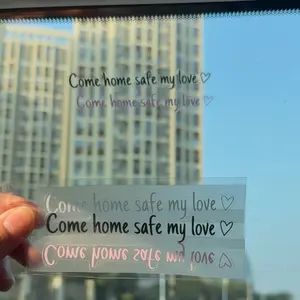 Come home safe my love ♡
Come home safe my love ♡
Come home safe my love ♡
Come home safe my love ♡
Come home safe my love ♡